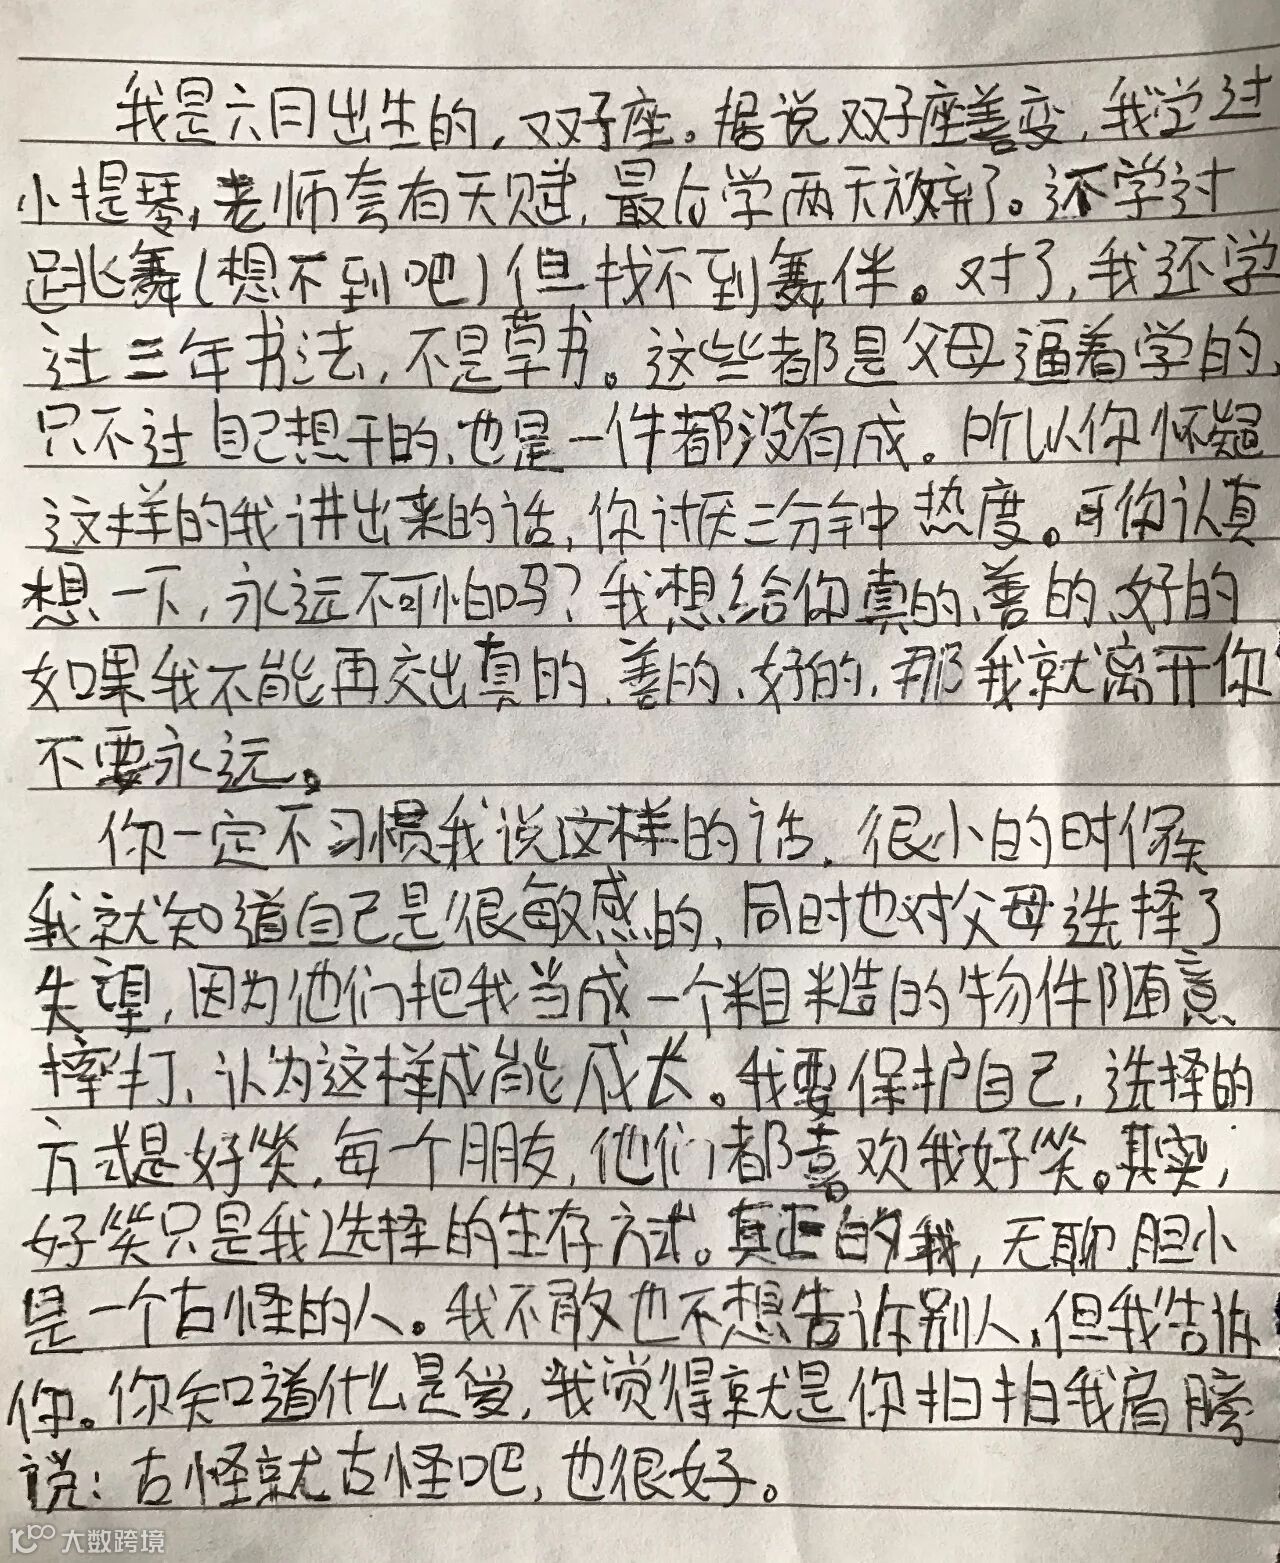 我是六月出生的,双子座。据说双子座善变,我学过
小提琴,老师夸有天赋,最后学两天放弃了。还学过
跳舞(想不到吧)但找不到舞伴。对了,我还学
过三年书法,不是草书。这些都是父母逼着学的,
只不过自己想干的,也是一件都没有成。所以你怀疑
这样的我讲出来的话,你讨厌三分钟热度。可你认真
想一下,永远不可怕吗?我想给你真的、善的、好的
如果我不能再交出真的、善的、好的,那我就离开你
不要永远。
你一定不习惯我说这样的话,很小的时候
我就知道自己是很敏感的,同时也对父母选择了
失望,因为他们把我当成一个粗糙的物件随意
摔打,认为这样成能成长。我要保护自己,选择的
方式是好笑,每个朋友,他们都喜欢我好笑。其实,
好笑只是我选择的生存方式。真正的我,无聊胆小
是一个古怪的人。我不敢也不想告诉别人,但我告诉
你。你知道什么是爱,我觉得就是你拍拍我肩膀
说:古怪就古怪吧,也很好。
大数跨境